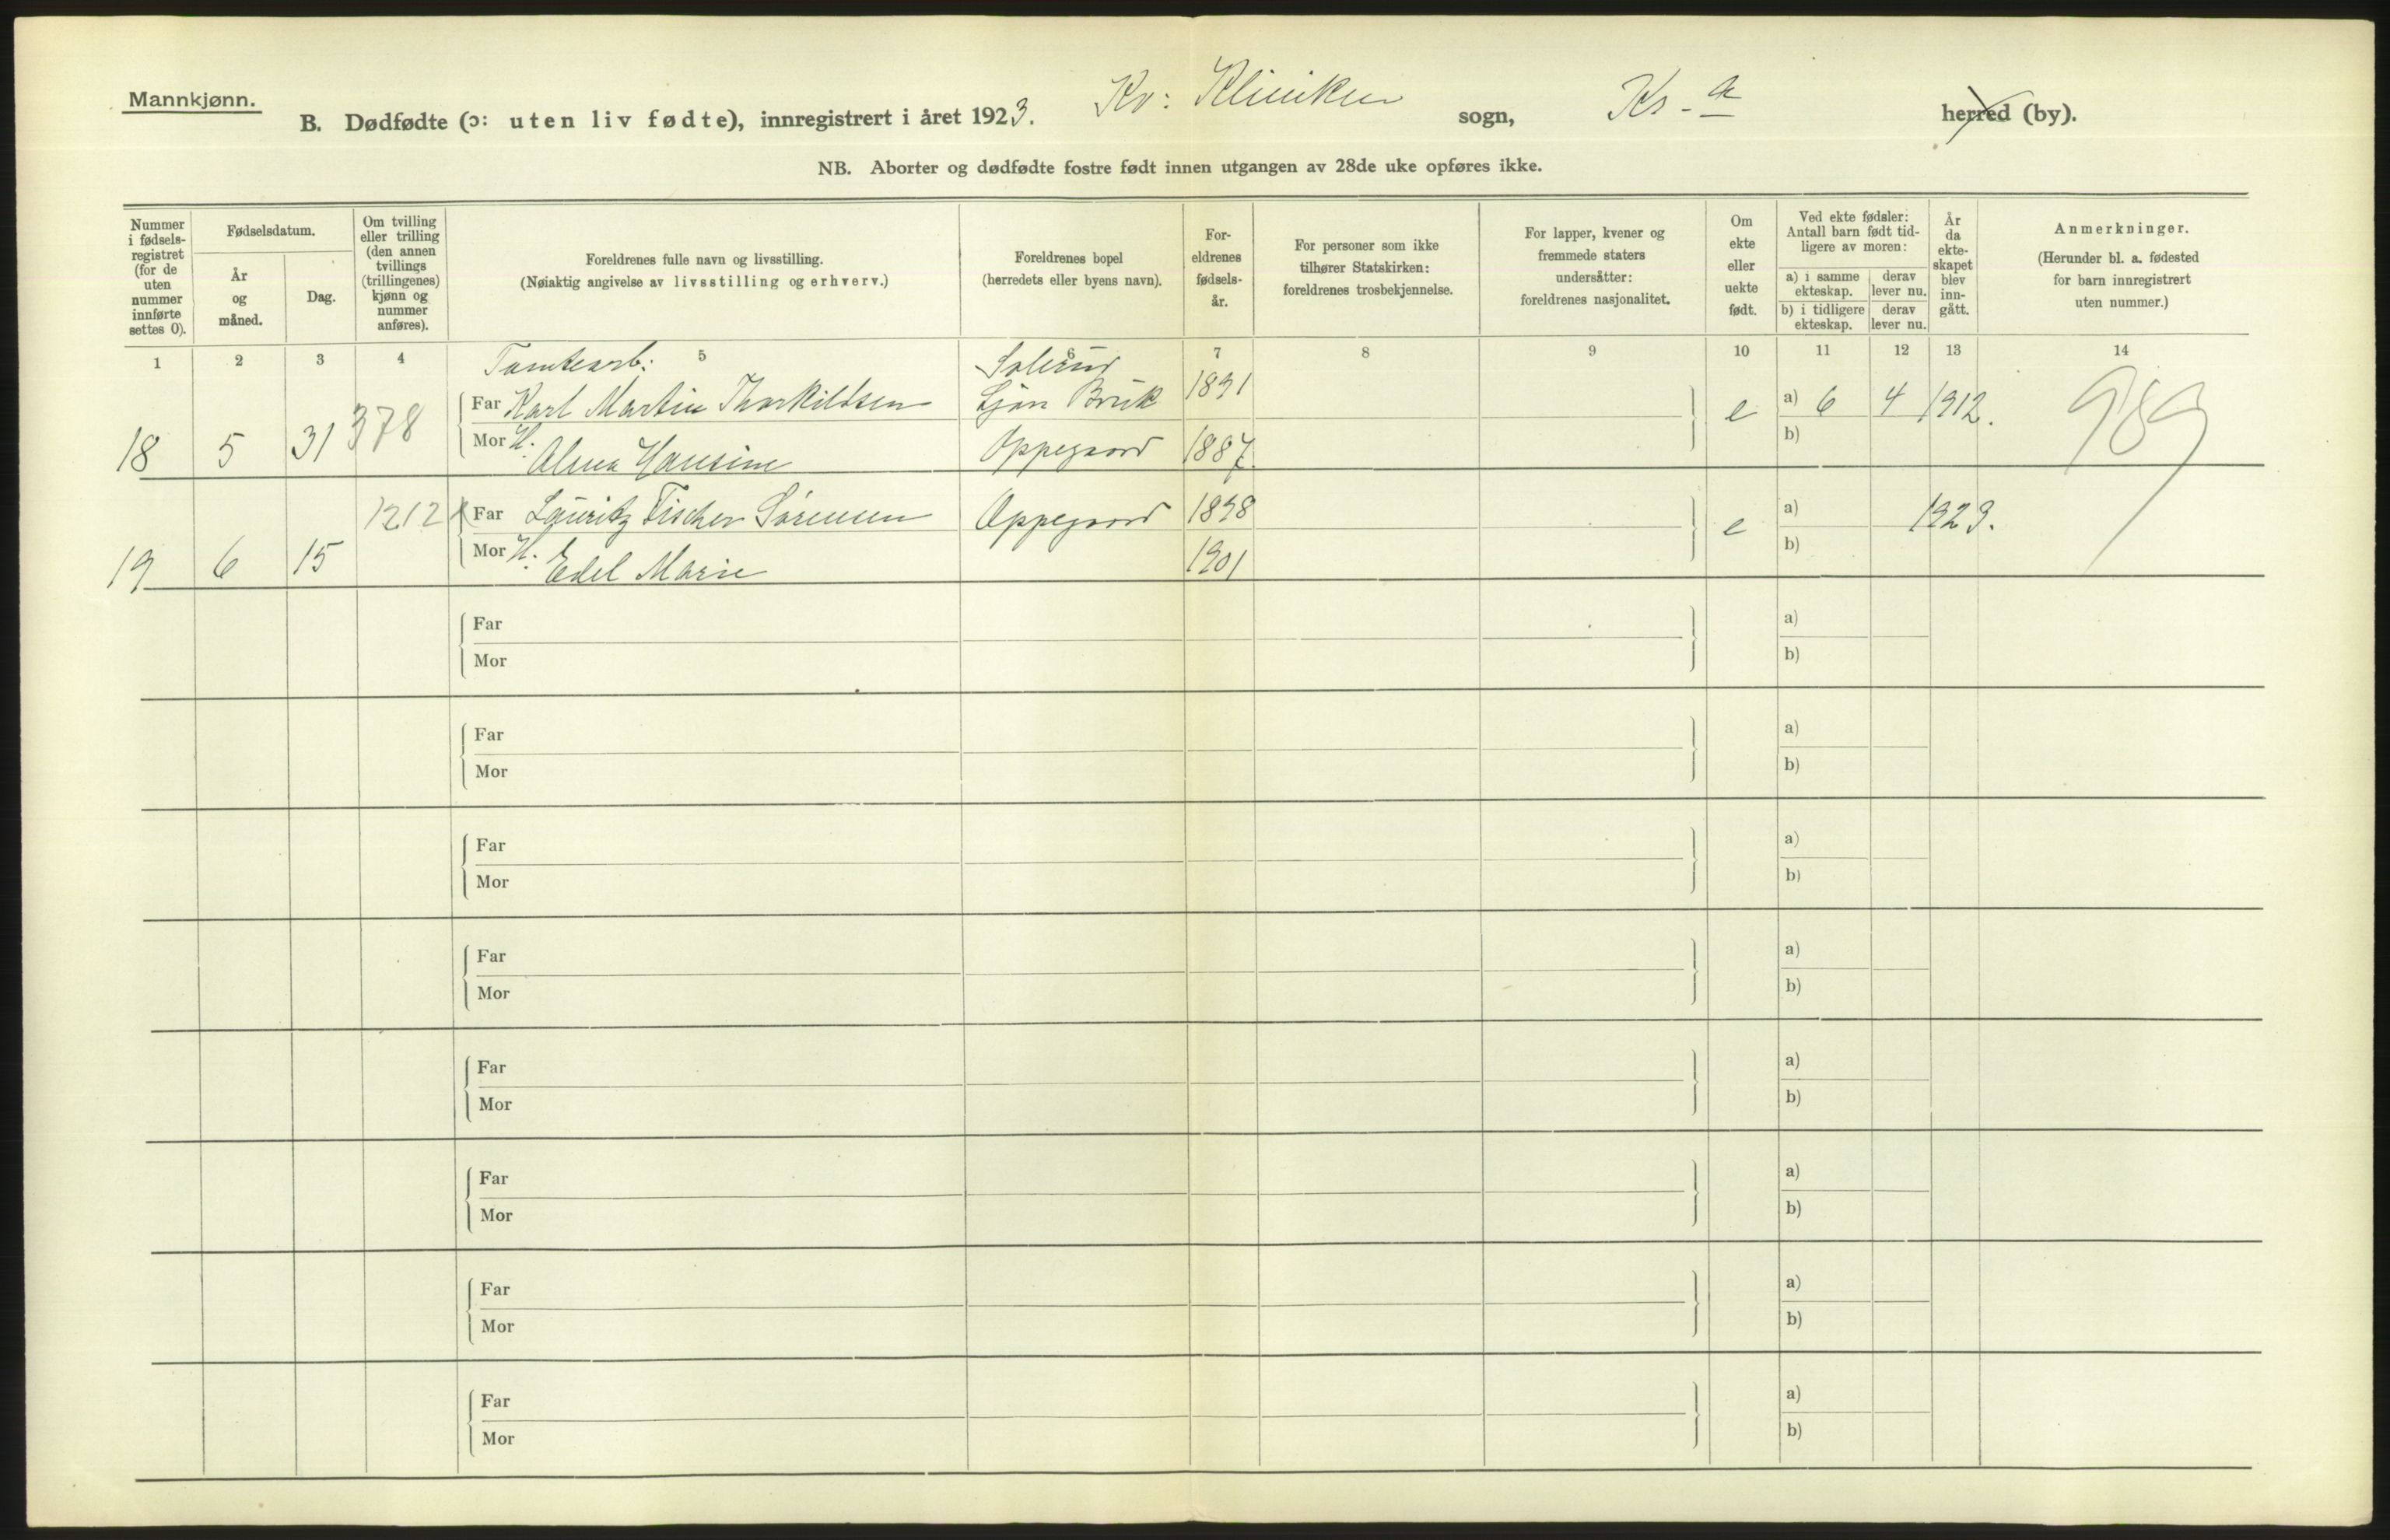 Mannkjønn.
B. Dødfødte (ɔ: uten liv fødte), innregistrert i året 1923. Kv: Kliniken sogn, Kr-a herred (by).
NB. Aborter og dødfødte fostre født innen utgangen av 28de uke opføres ikke.
Nummer i fødsels-registret (for de uten nummer innførte settes 0).
Fødselsdatum.
År og måned.
Dag.
Om tvilling eller trilling (den annen tvillings (trillingenes) kjønn og nummer anføres).
Foreldrenes fulle navn og livsstilling.
(Nøiaktig angivelse av livsstilling og erhverv.)
Foreldrenes bopel
(herredets eller byens navn).
For-eldrenes fødsels-år.
For personer som ikke tilhører Statskirken: foreldrenes trosbekjennelse.
For lapper, kvener og fremmede staters undersåtter: foreldrenes nasjonalitet.
Om ekte eller uekte født.
Ved ekte fødsler: Antall barn født tid-ligere av moren:
a) i samme ekteskap.
derav lever nu.
b) i tidligere ekteskap.
derav lever nu.
År da ekte-skapet blev inn-gått.
Anmerkninger.
(Herunder bl. a. fødested for barn innregistrert uten nummer.)
1 2 3 4 5 6 7 8 9 10 11 12 13 14
Tomtearb:
18 5 31 378 Far Karl Martin Thorkildsen Ljan Bruk 1891 e a) 6 4 1912.
Mor H. Alma Hansine Oppegaard 1887. b)
989
19 6 15 1212 Far Lauritz Fischer Sørensen Oppegaard 1898 e a) 1923.
Mor H. Edel Marie 1901 b)
Far a)
Mor b)
Far a)
Mor b)
Far a)
Mor b)
Far a)
Mor b)
Far a)
Mor b)
Far a)
Mor b)
Far a)
Mor b)
Far a)
Mor b)